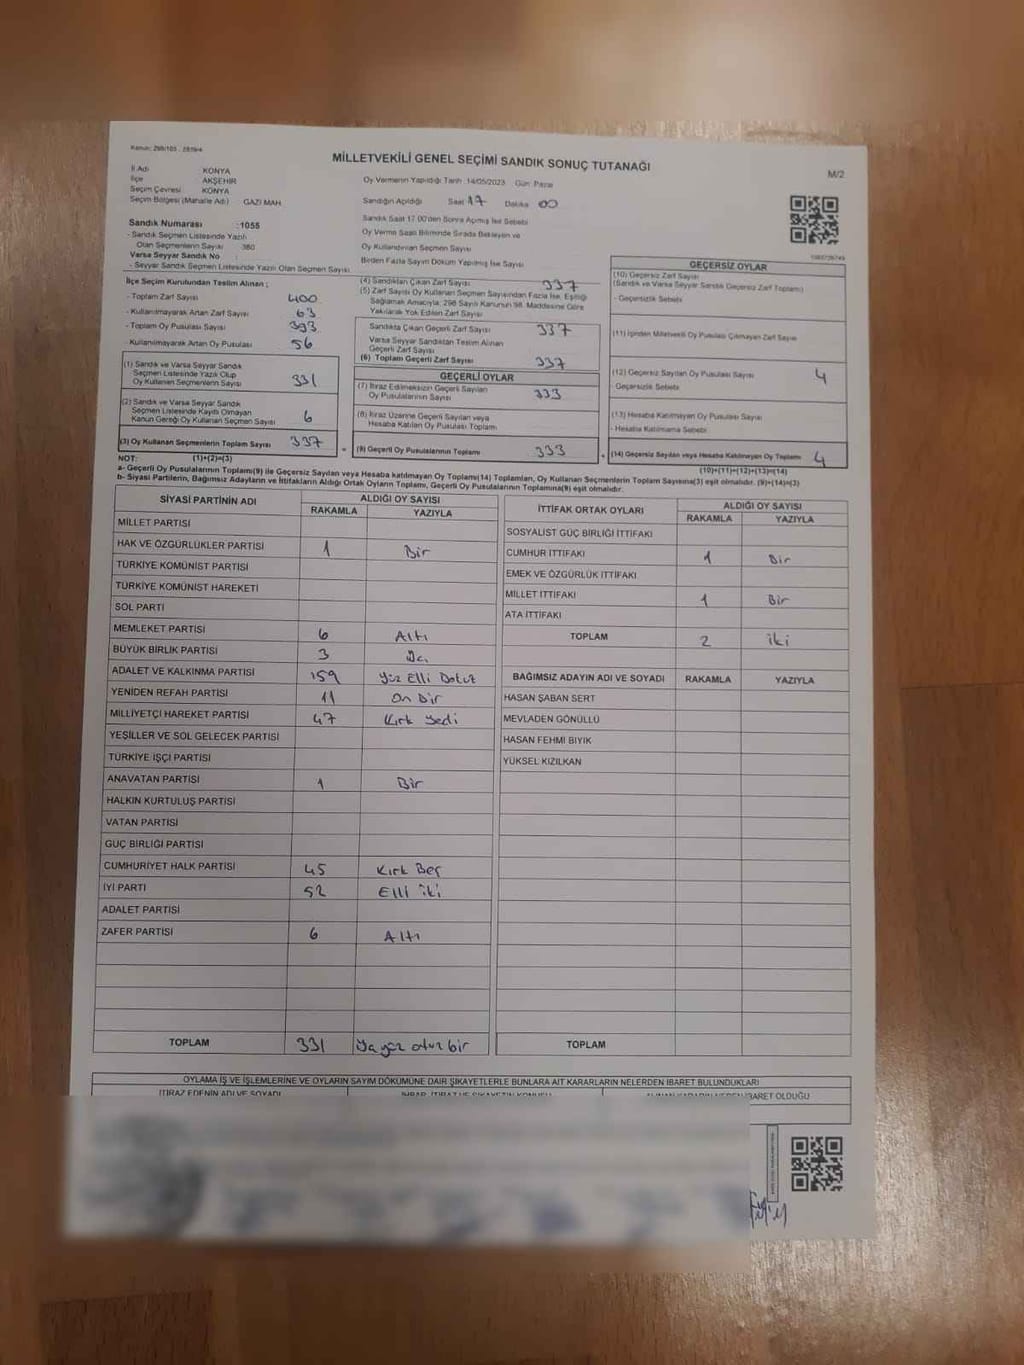 Kanun: 298/105 , 2839/4
MİLLETVEKİLİ GENEL SEÇİMİ SANDIK SONUÇ TUTANAĞI
M/2
İl Adı KONYA
İlçe AKŞEHİR
Seçim Çevresi KONYA
Seçim Bölgesi (Mahalle Adı) GAZİ MAH.
Oy Vermenin Yapıldığı Tarih 14/05/2023 Gün: Pazar
Sandığın Açıldığı Saat 17 Dakika 00
Sandık Saat 17:00'den Sonra Açılmış İse Sebebi
Oy Verme Saati Bitiminde Sırada Bekleyen ve
Oy Kullandırılan Seçmen Sayısı
Birden Fazla Sayım Döküm Yapılmış İse Sayısı
Sandık Numarası :1055
- Sandık Seçmen Listesinde Yazılı
Olan Seçmenlerin Sayısı 380
Varsa Seyyar Sandık No
- Seyyar Sandık Seçmen Listesinde Yazılı Olan Seçmen Sayısı
İlçe Seçim Kurulundan Teslim Alınan ;
- Toplam Zarf Sayısı 400
- Kullanılmayarak Artan Zarf Sayısı 63
- Toplam Oy Pusulası Sayısı 393
- Kullanılmayarak Artan Oy Pusulası 56
(1) Sandık ve Varsa Seyyar Sandık
Seçmen Listesinde Yazılı Olup
Oy Kullanan Seçmenlerin Sayısı 331
(2) Sandık ve Varsa Seyyar Sandık
Seçmen Listesinde Kayıtlı Olmayan
Kanun Gereği Oy Kullanan Seçmen Sayısı 6
(3) Oy Kullanan Seçmenlerin Toplam Sayısı 337
(1)+(2)=(3)
(4) Sandıktan Çıkan Zarf Sayısı 337
(5) Zarf Sayısı Oy Kullanan Seçmen Sayısından Fazla İse, Eşitliği
Sağlamak Amacıyla; 298 Sayılı Kanunun 98. Maddesine Göre
Yakılarak Yok Edilen Zarf Sayısı
Sandıkta Çıkan Geçerli Zarf Sayısı 337
Varsa Seyyar Sandıktan Teslim Alınan
Geçerli Zarf Sayısı
(6) Toplam Geçerli Zarf Sayısı 337
GEÇERLİ OYLAR
(7) İtiraz Edilmeksizin Geçerli Sayılan
Oy Pusulalarının Sayısı 333
(8) İtiraz Üzerine Geçerli Sayılan veya
Hesaba Katılan Oy Pusulası Toplamı
= (9) Geçerli Oy Pusulalarının Toplamı 333
GEÇERSİZ OYLAR
(10) Geçersiz Zarf Sayısı
(Sandık ve Varsa Seyyar Sandık Geçersiz Zarf Toplamı)
- Geçersizlik Sebebi
(11) İçinden Milletvekili Oy Pusulası Çıkmayan Zarf Sayısı
(12) Geçersiz Sayılan Oy Pusulası Sayısı 4
Geçersizlik Sebebi
(13) Hesaba Katılmayan Oy Pusulası Sayısı
- Hesaba Katılmama Sebebi
+ (14) Geçersiz Sayılan veya Hesaba Katılmayan Oy Toplamı 4
(10)+(11)+(12)+(13)=(14)
NOT:
a- Geçerli Oy Pusulalarının Toplamı(9) ile Geçersiz Sayılan veya Hesaba katılmayan Oy Toplamı(14) Toplamları, Oy Kullanan Seçmenlerin Toplam Sayısına(3) eşit olmalıdır. (9)+(14)=(3)
b- Siyasi Partilerin, Bağımsız Adayların ve İttifakların Aldığı Ortak Oyların Toplamı, Geçerli Oy Pusulalarının Toplamına(9) eşit olmalıdır.
SİYASİ PARTİNİN ADI ALDIĞI OY SAYISI
RAKAMLA YAZIYLA
MİLLET PARTİSİ
HAK VE ÖZGÜRLÜKLER PARTİSİ 1 Bir
TÜRKİYE KOMÜNİST PARTİSİ
TÜRKİYE KOMÜNİST HAREKETİ
SOL PARTİ
MEMLEKET PARTİSİ 6 Altı
BÜYÜK BİRLİK PARTİSİ 3 Üç
ADALET VE KALKINMA PARTİSİ 159 Yüz Elli Dokuz
YENİDEN REFAH PARTİSİ 11 On Bir
MİLLİYETÇİ HAREKET PARTİSİ 47 Kırk Yedi
YEŞİLLER VE SOL GELECEK PARTİSİ
TÜRKİYE İŞÇİ PARTİSİ
ANAVATAN PARTİSİ 1 Bir
HALKIN KURTULUŞ PARTİSİ
VATAN PARTİSİ
GÜÇ BİRLİĞİ PARTİSİ
CUMHURİYET HALK PARTİSİ 45 Kırk Beş
İYİ PARTİ 52 Elli iki
ADALET PARTİSİ
ZAFER PARTİSİ 6 Altı
TOPLAM 331 otuz bir
İTTİFAK ORTAK OYLARI ALDIĞI OY SAYISI
RAKAMLA YAZIYLA
SOSYALİST GÜÇ BİRLİĞİ İTTİFAKI
CUMHUR İTTİFAKI 1 Bir
EMEK VE ÖZGÜRLÜK İTTİFAKI
MİLLET İTTİFAKI 1 Bir
ATA İTTİFAKI
TOPLAM 2 iki
BAĞIMSIZ ADAYIN ADI VE SOYADI RAKAMLA YAZIYLA
HASAN ŞABAN SERT
MEVLADEN GÖNÜLLÜ
HASAN FEHMİ BIYIK
YÜKSEL KIZILKAN
TOPLAM
OYLAMA İŞ VE İŞLEMLERİNE VE OYLARIN SAYIM DÖKÜMÜNE DAİR ŞİKAYETLERLE BUNLARA AİT KARARLARIN NELERDEN İBARET BULUNDUKLARI
İTİRAZ EDENİN ADI VE SOYADI
İBARET OLDUĞU